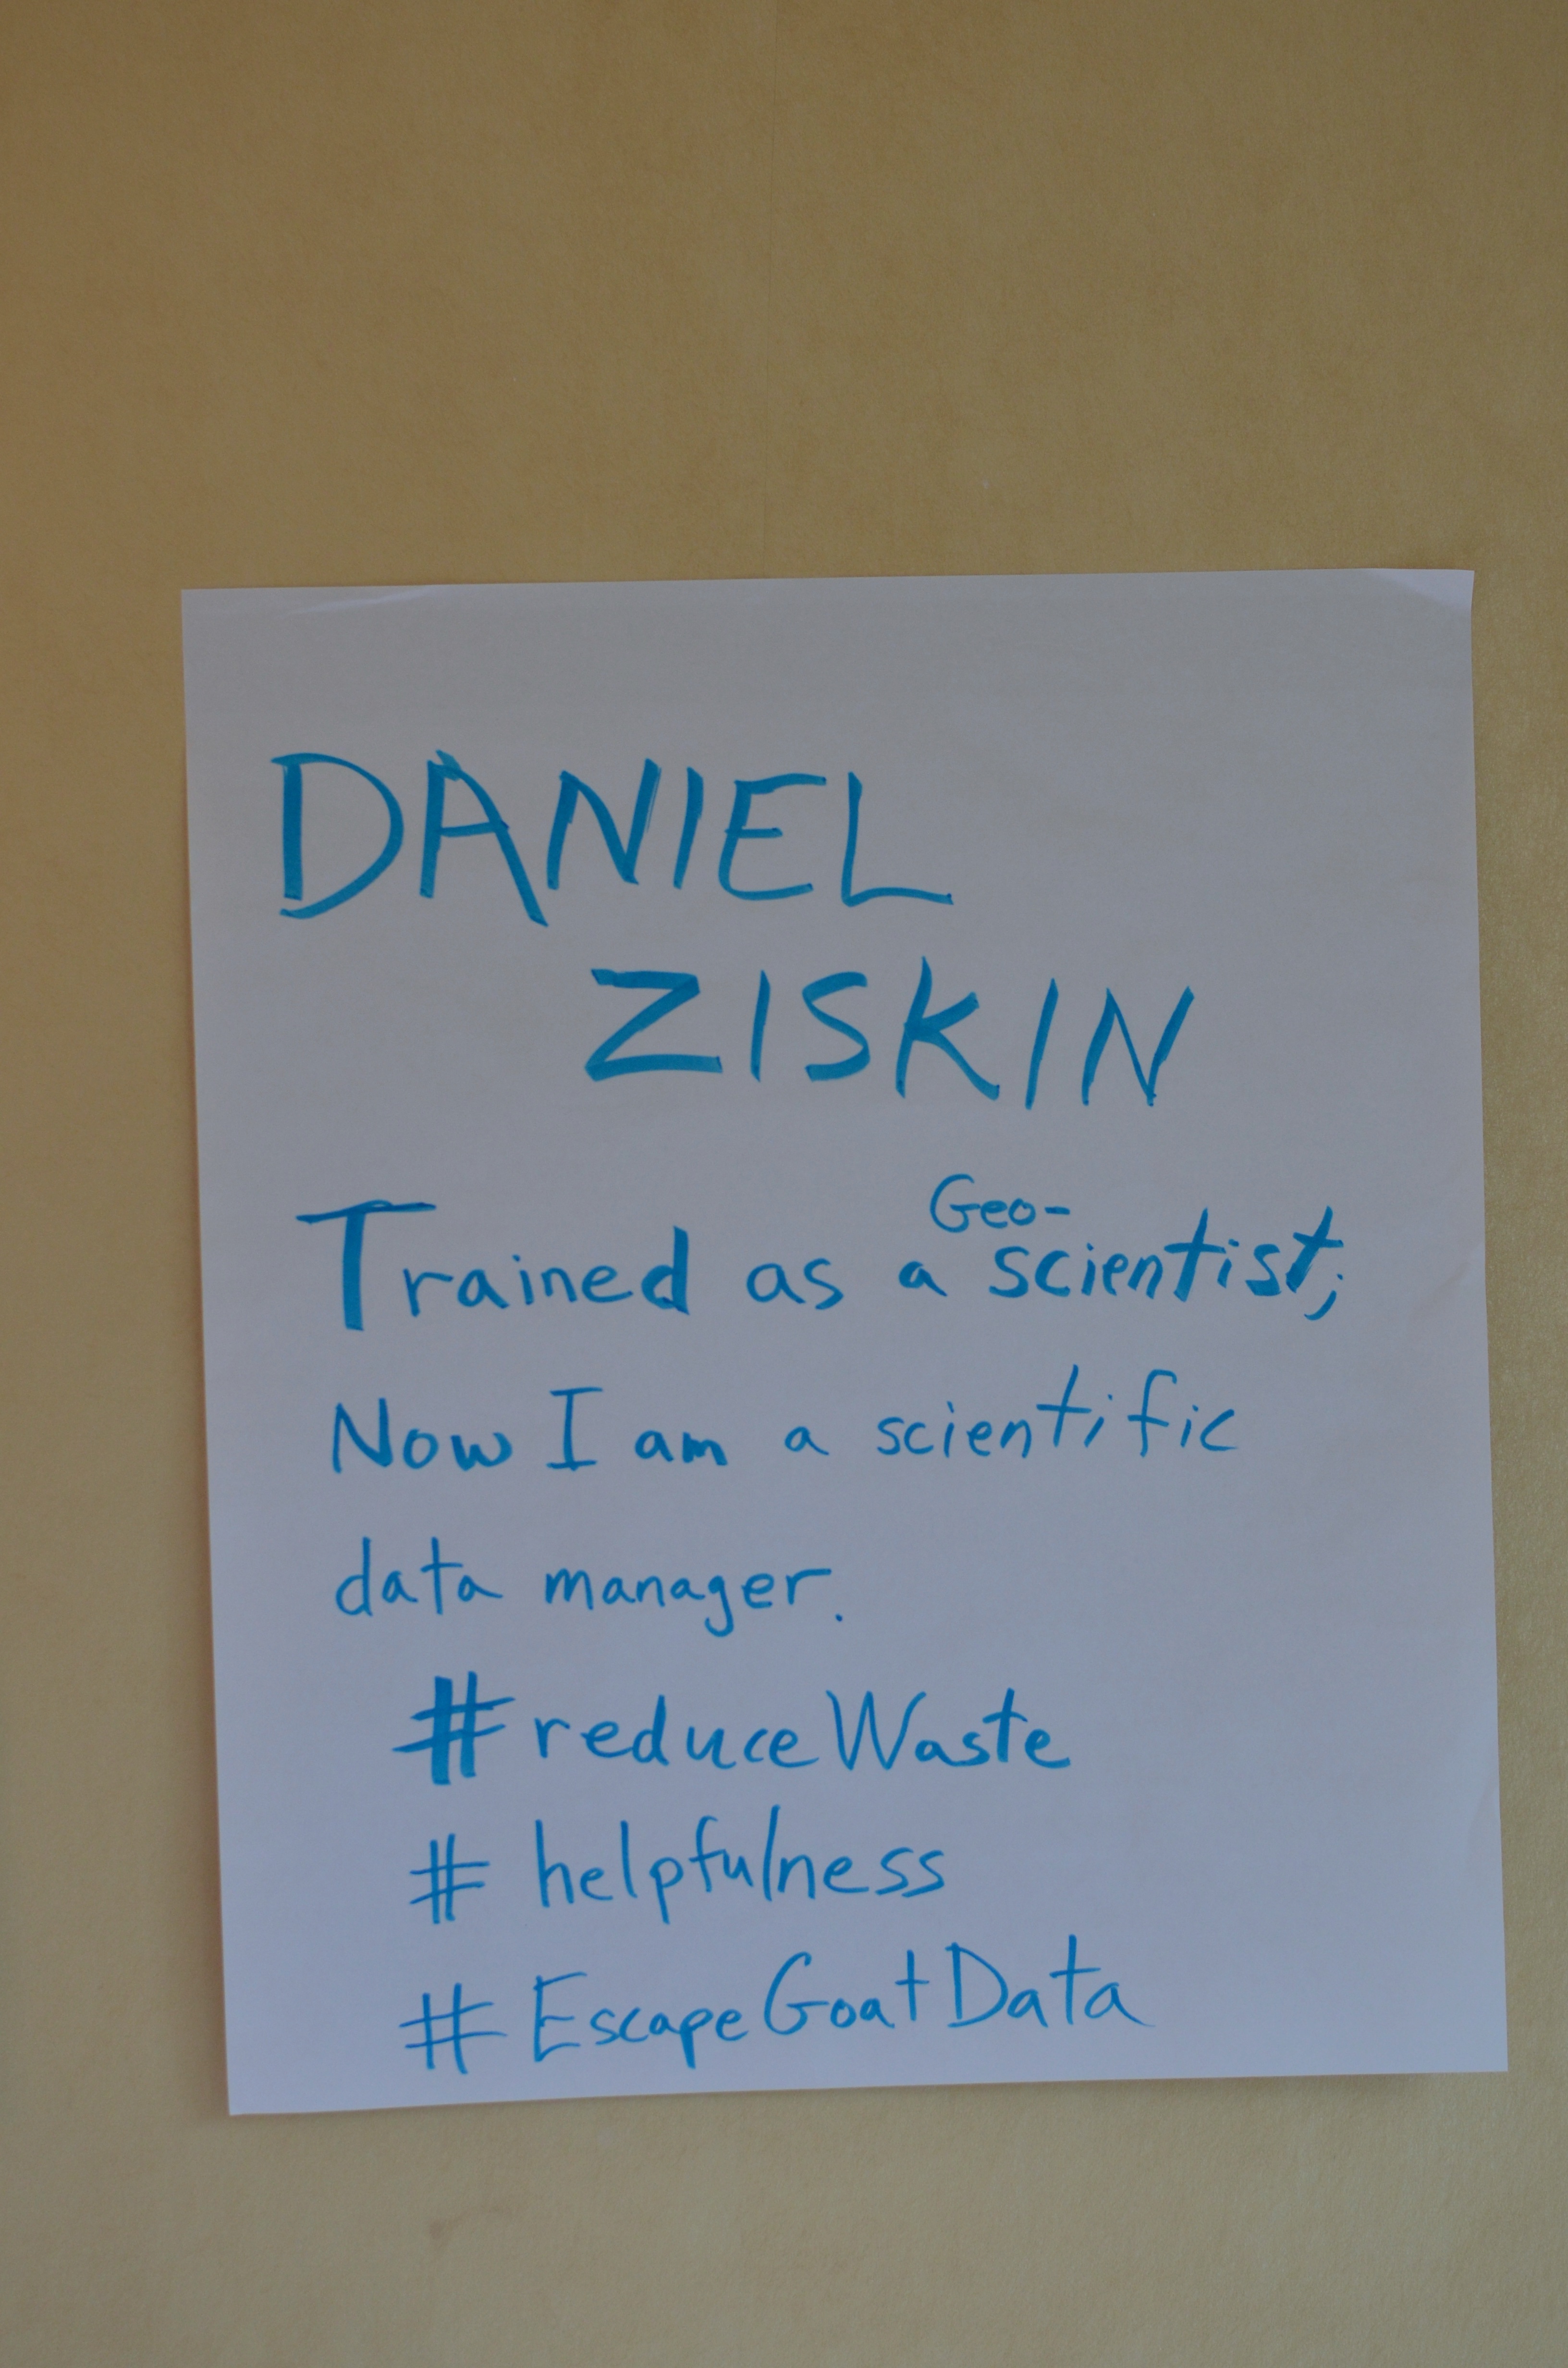 DANIEL
ZISKIN
Trained as a Geo-scientist;
Now I am a scientific
data manager.
#reduceWaste
# helpfulness
# EscapeGoatData